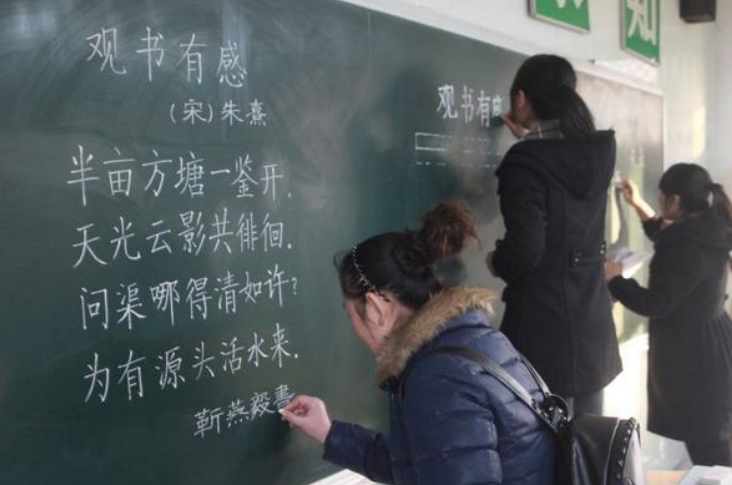 观书有感
(宋)朱熹
半亩方塘一鉴开.
天光云影共徘徊.
问渠哪得清如许?
为有源头活水来.
靳燕毅書
观书有
知